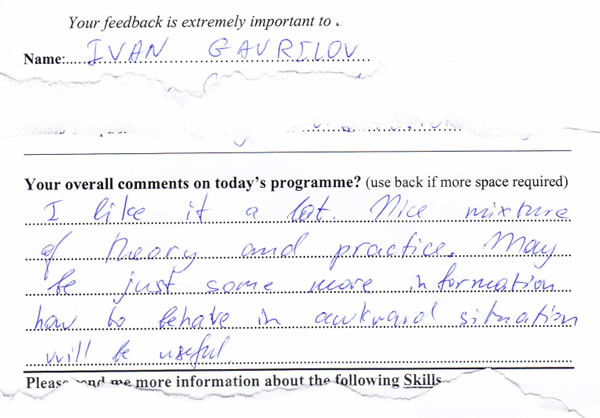 Your feedback is extremely important to .
Name: IVAN GAVRILOV
Your overall comments on today's programme? (use back if more space required)
I like it a lot. Nice mixture
of theory and practice. May
be just some more information
how to behave in awkward situation
will be useful
Please send me more information about the following Skills